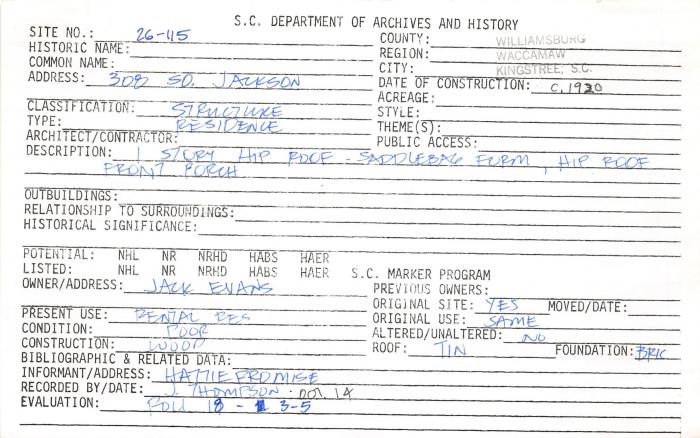 S.C. DEPARTMENT OF ARCHIVES AND HISTORY
SITE NO.: 26-115
COUNTY: WILLIAMSBURG
HISTORIC NAME:
REGION: WACCAMAW
COMMON NAME:
CITY: KINGSTREE, S.C.
ADDRESS: 308 SO. JACKSON
DATE OF CONSTRUCTION: C.1920
ACREAGE:
CLASSIFICATION: STRUCTURE
STYLE:
TYPE: RESIDENCE
THEME(S):
ARCHITECT/CONTRACTOR:
PUBLIC ACCESS:
DESCRIPTION: 1 STORY HIP ROOF - SADDLEBAG FORM, HIP ROOF
FRONT PORCH
OUTBUILDINGS:
RELATIONSHIP TO SURROUNDINGS:
HISTORICAL SIGNIFICANCE:
POTENTIAL: NHL NR NRHD HABS HAER
LISTED: NHL NR NRHD HABS HAER S.C. MARKER PROGRAM
OWNER/ADDRESS: JACK EVANS
PREVIOUS OWNERS:
ORIGINAL SITE: YES MOVED/DATE:
PRESENT USE: RENTAL RES
ORIGINAL USE: SAME
CONDITION: POOR
ALTERED/UNALTERED: NO
CONSTRUCTION: WOOD
ROOF: TIN FOUNDATION: BRIC
BIBLIOGRAPHIC & RELATED DATA:
INFORMANT/ADDRESS: HATTIE PROMISE
RECORDED BY/DATE: J. THOMPSON 14
EVALUATION: ROLL 18 - 3-5